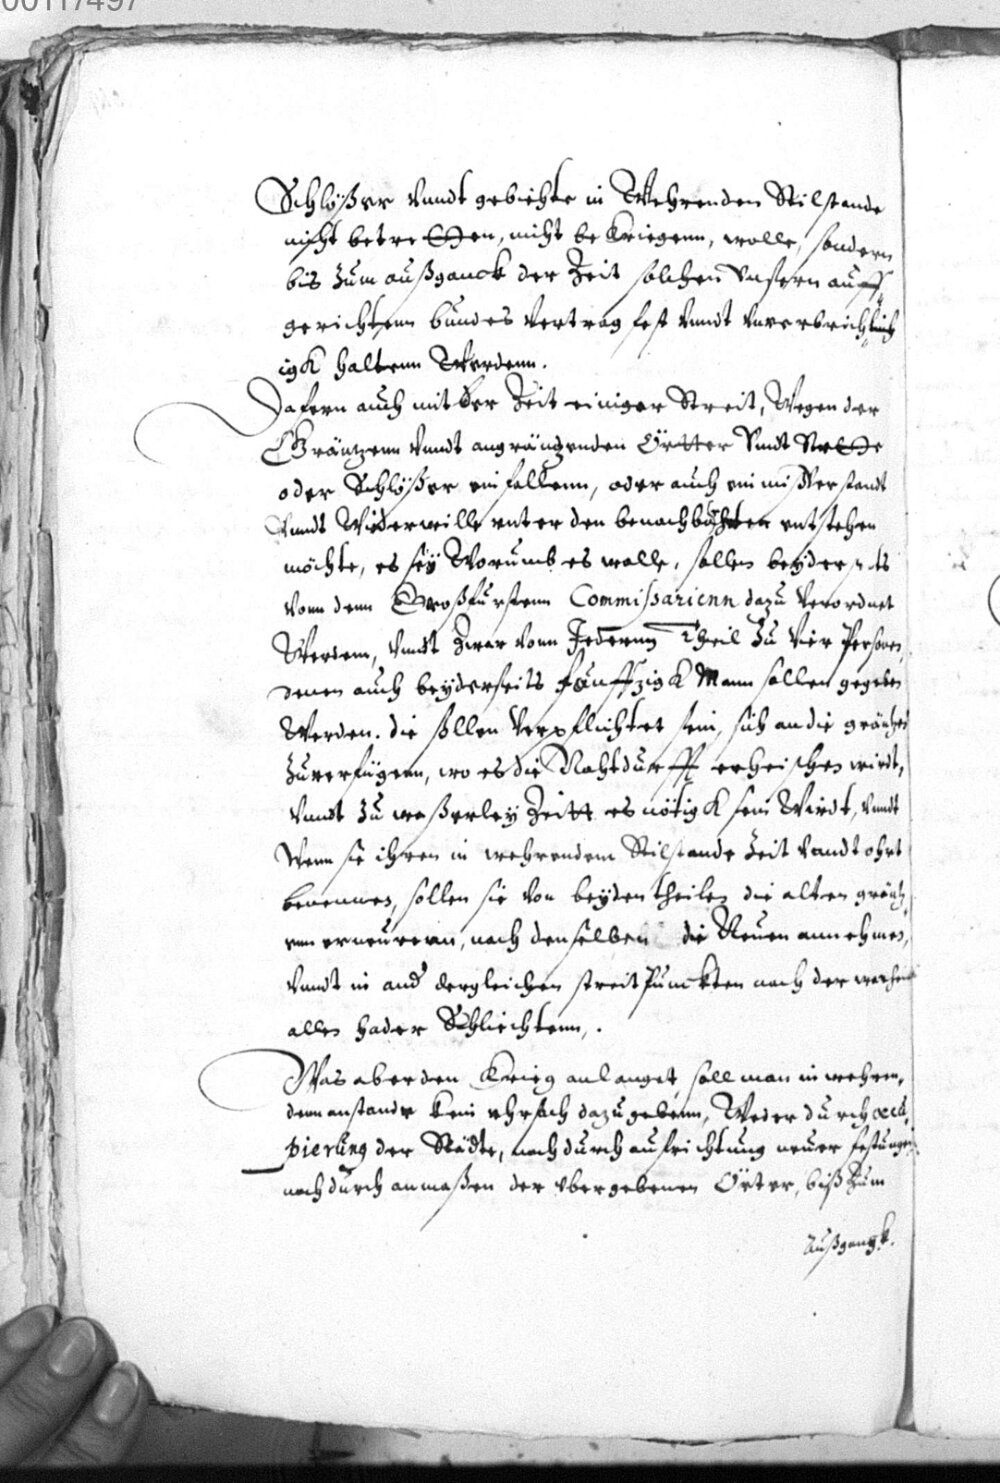 00117497
Schlößer vnndt gebiehte in Wehrenden Stilstande
nicht betretten, nicht bekriegenn, wolle, sondern
bis zum außganck der Zeit solchen vnsern auff
gerichtenn bundes vertrag fest vnndt vnverbrichlich
igk haltenn Werdenn.
Dafern auch mit der Zeit einiger Streit, Wegen der
Gräntzenn vnndt angräntzenden Örtter vndt Stette
oder Schlößer einfallenn, oder auch ein mißverstandt
vnndt Wiederwille vnter den benachbahrten entstehen
möchte, es seÿ Worumb es wolle, sollen beÿderseits
vonn denn Großfürstenn Commißarienn dazu verordnet
Werdenn, vnndt Zwar vonn Jederm Theil zu vier Persohnen,
denen auch beÿderseits funffzigk Mann sollen gegeben
Werden. die sollen verpflichtet sein, sich an die gräntzen
zuverfügenn, wo es die Nohtdurfft erheischen wirdt,
vnndt zu waßerleÿ Zeitt es nötigk sein Wirdt, vnndt
Wenn sie ihren in wehrendem Stilstande Zeit vnndt ohrt
benennen, sollen sie von beÿden theilen die alten gräntz
enn erneurenn, nach denselben die Neuen annehmen,
vnndt in and dergleichen streit Punckten nach der warheit
allen hader Schlichtenn,.
Was aber den Krieg anlanget, soll man in wehren,
dem anstande kein uhrsach dazu gebenn, Weder durch occu,
pierung der Städte, noch durch aufrichtung neuer festungen
noch durch anmaßen der übergebenen Örter, biß zum
Außgangk.